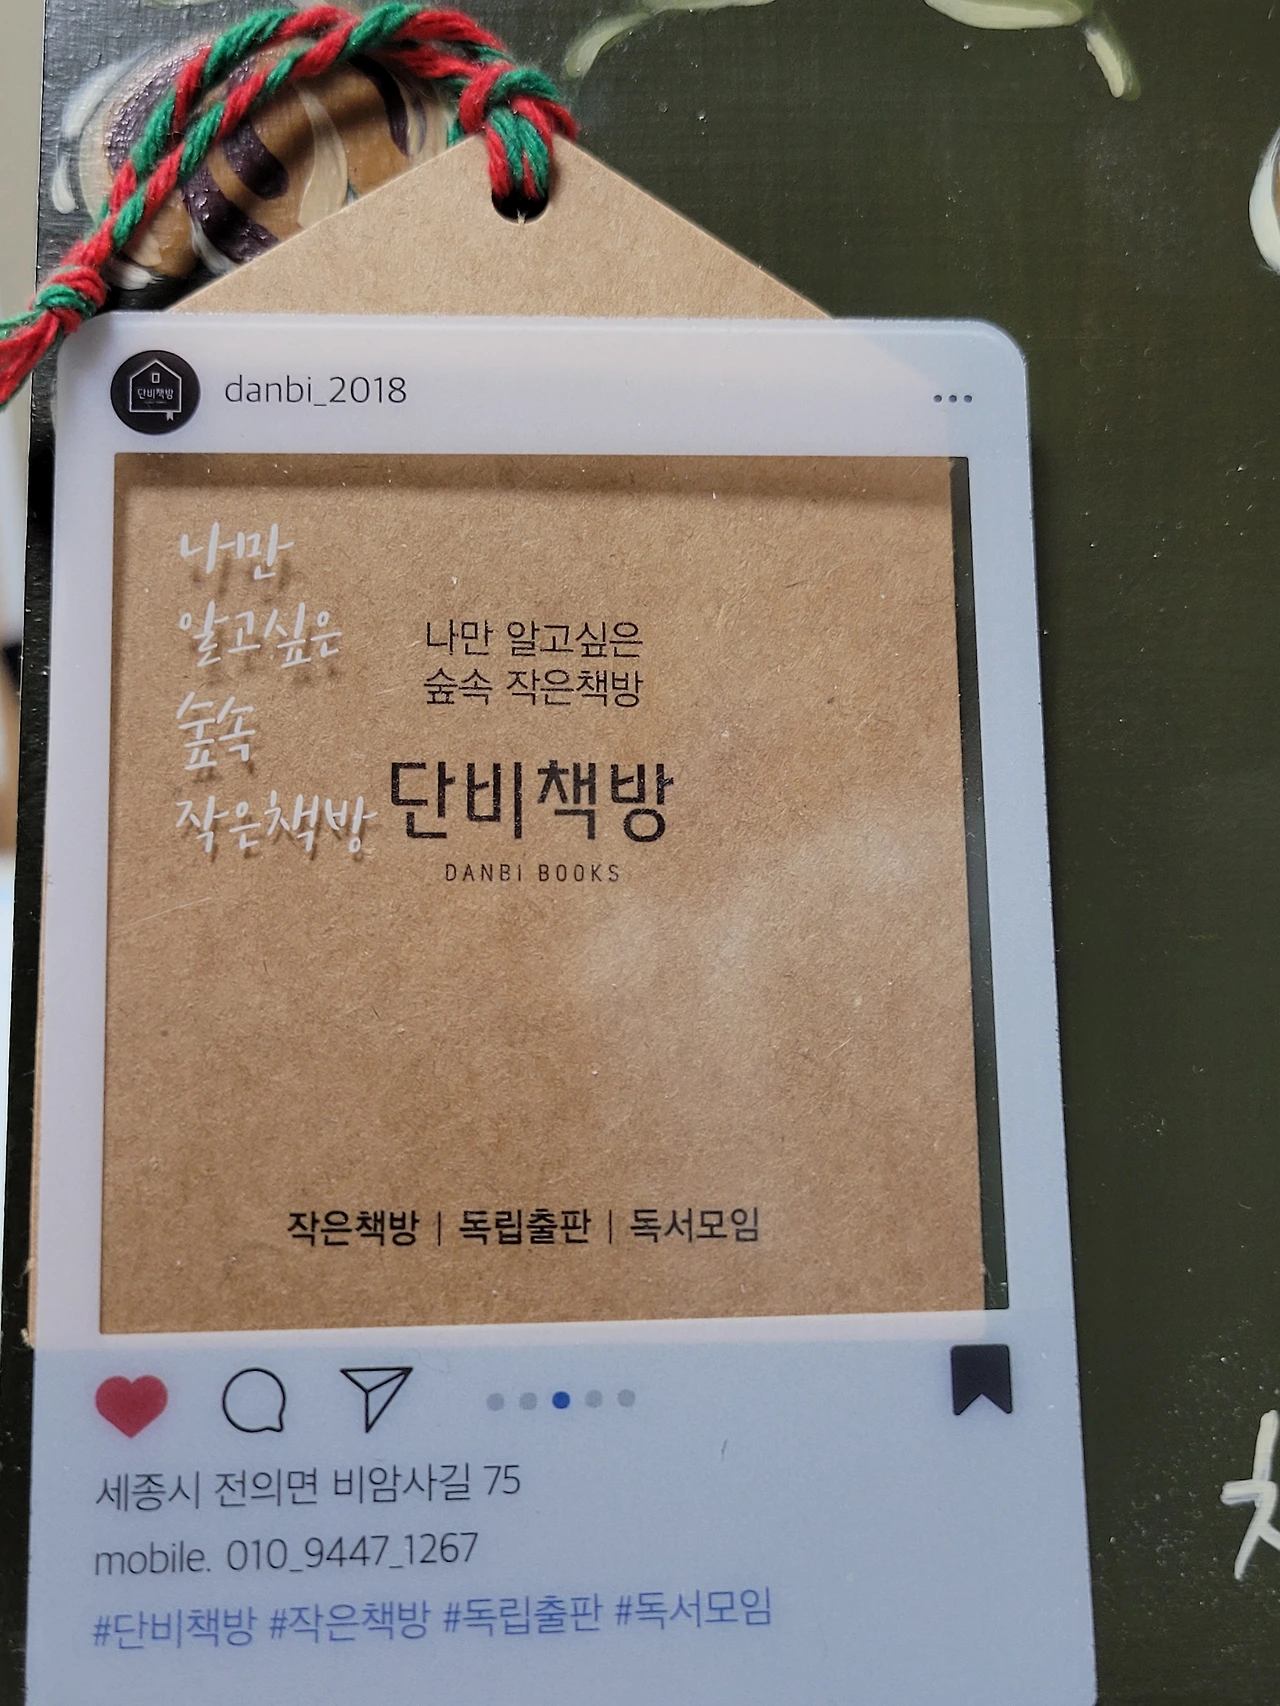 단비책방
danbi_2018
나만
알고싶은
숲속
작은책방
나만 알고싶은
숲속 작은책방
단비책방
DANBI BOOKS
작은책방 | 독립출판 | 독서모임
세종시 전의면 비암사길 75
mobile. 010_9447_1267
#단비책방 #작은책방 #독립출판 #독서모임